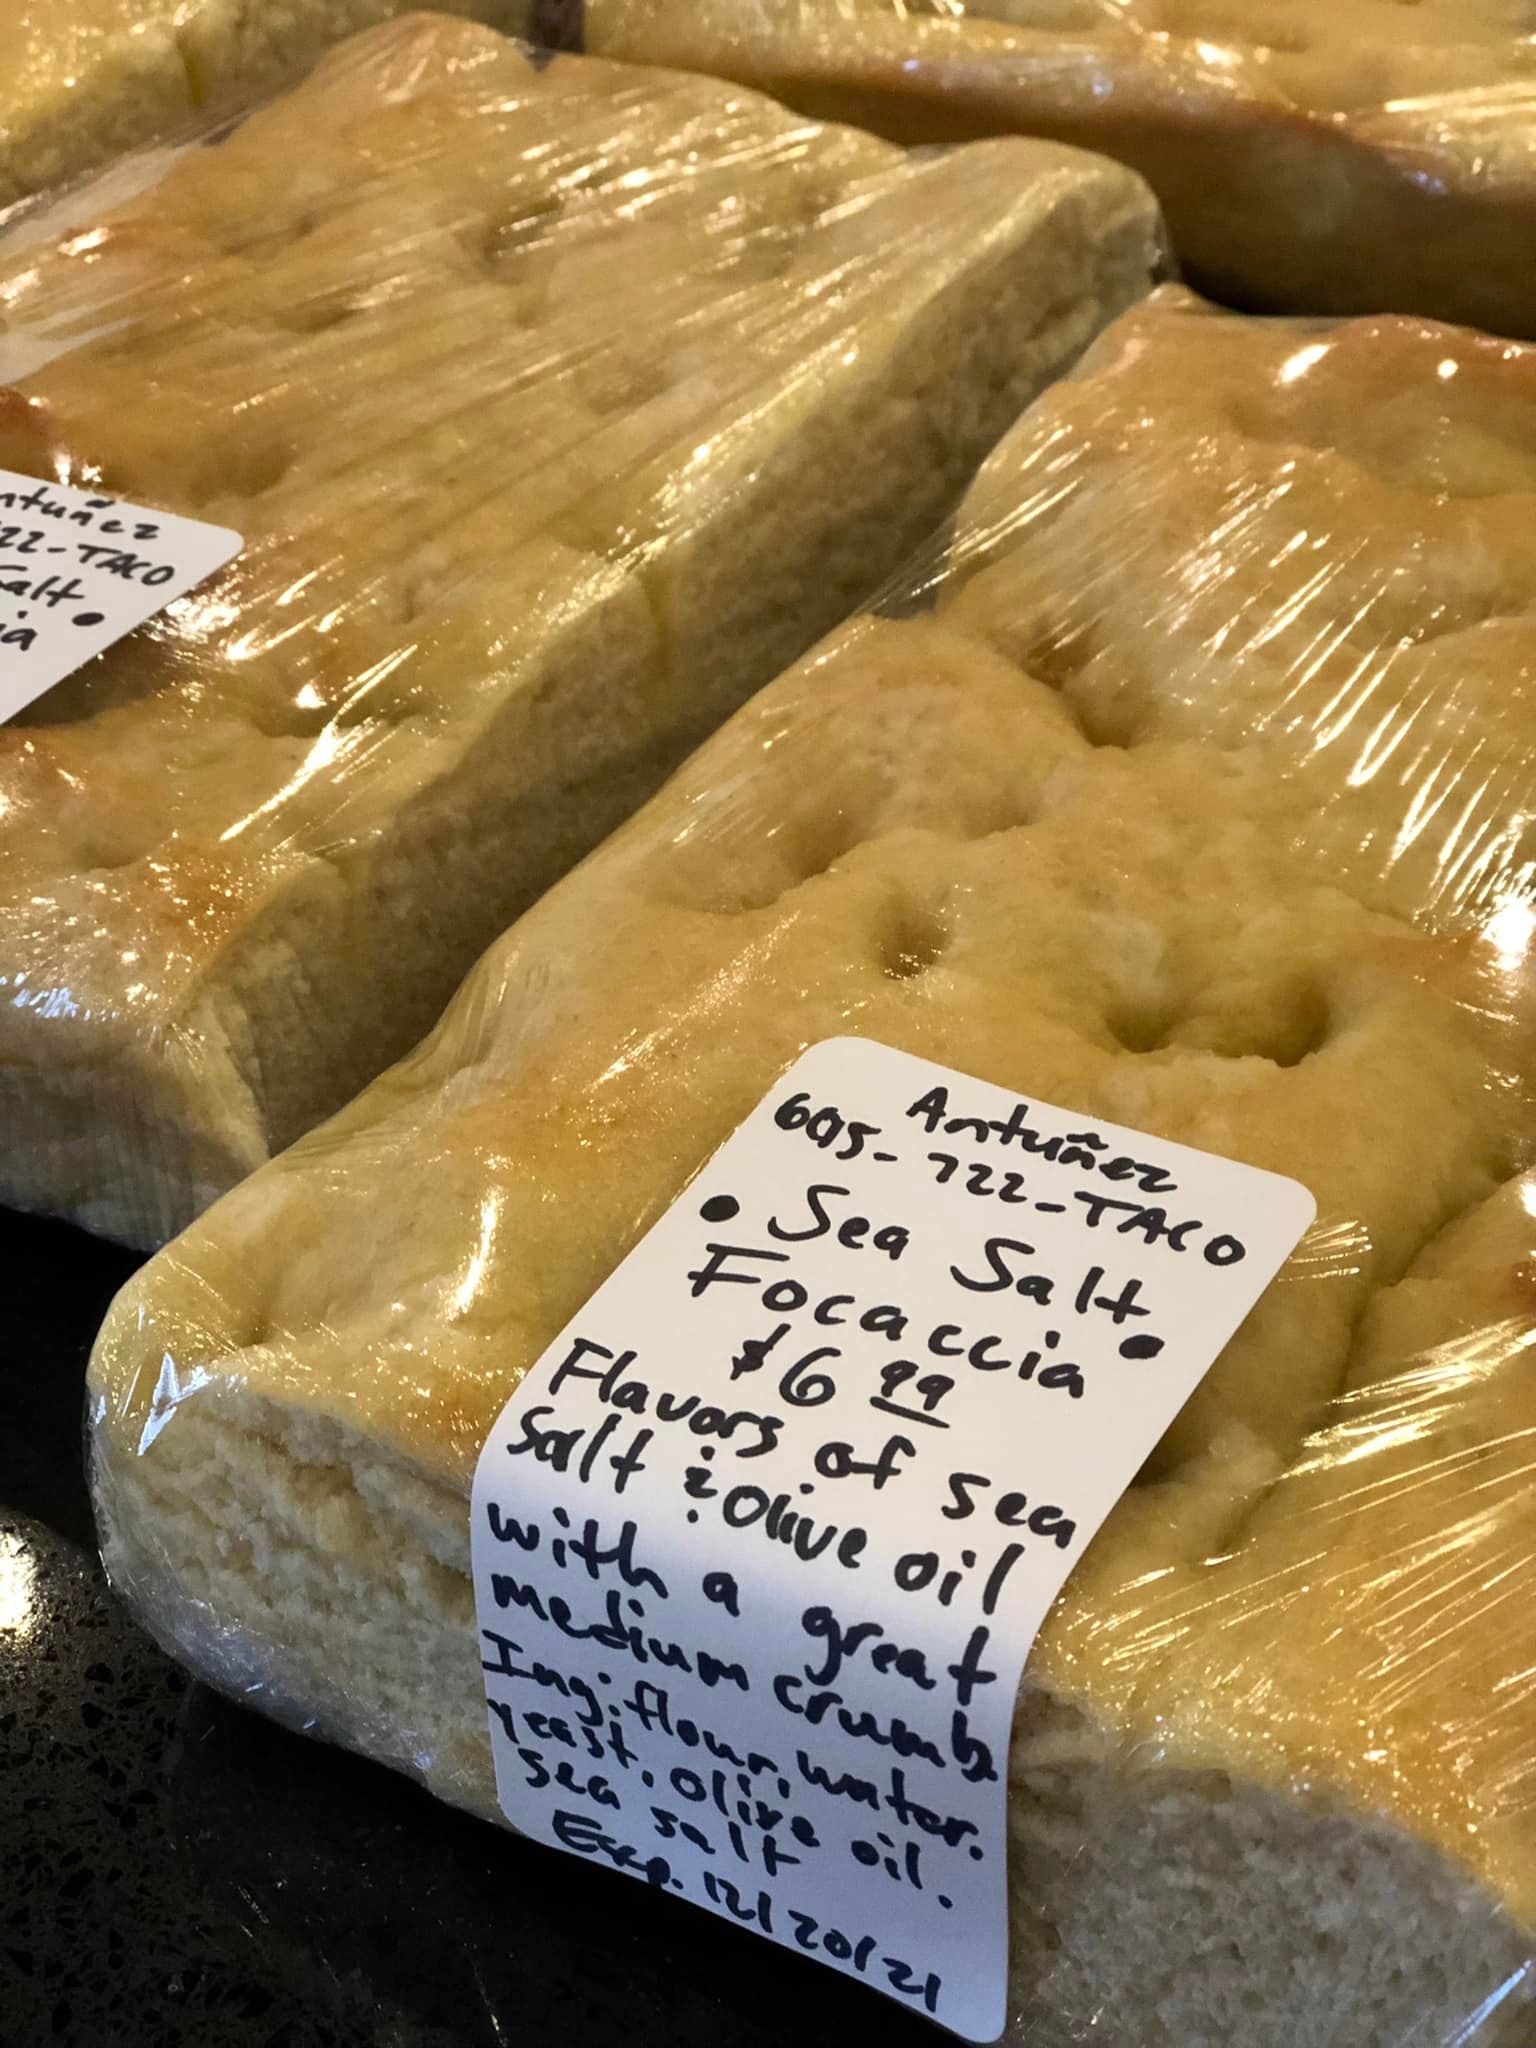 ntuñez
22-TACO
Salt •
ia
Antuñez
605-722-TACO
• Sea Salt •
Focaccia
$6 99
Flavors of sea
salt & Olive oil
with a great
medium crumb.
Ing: flour, water,
yeast, olive oil,
sea salt
Exp. 12/20/21